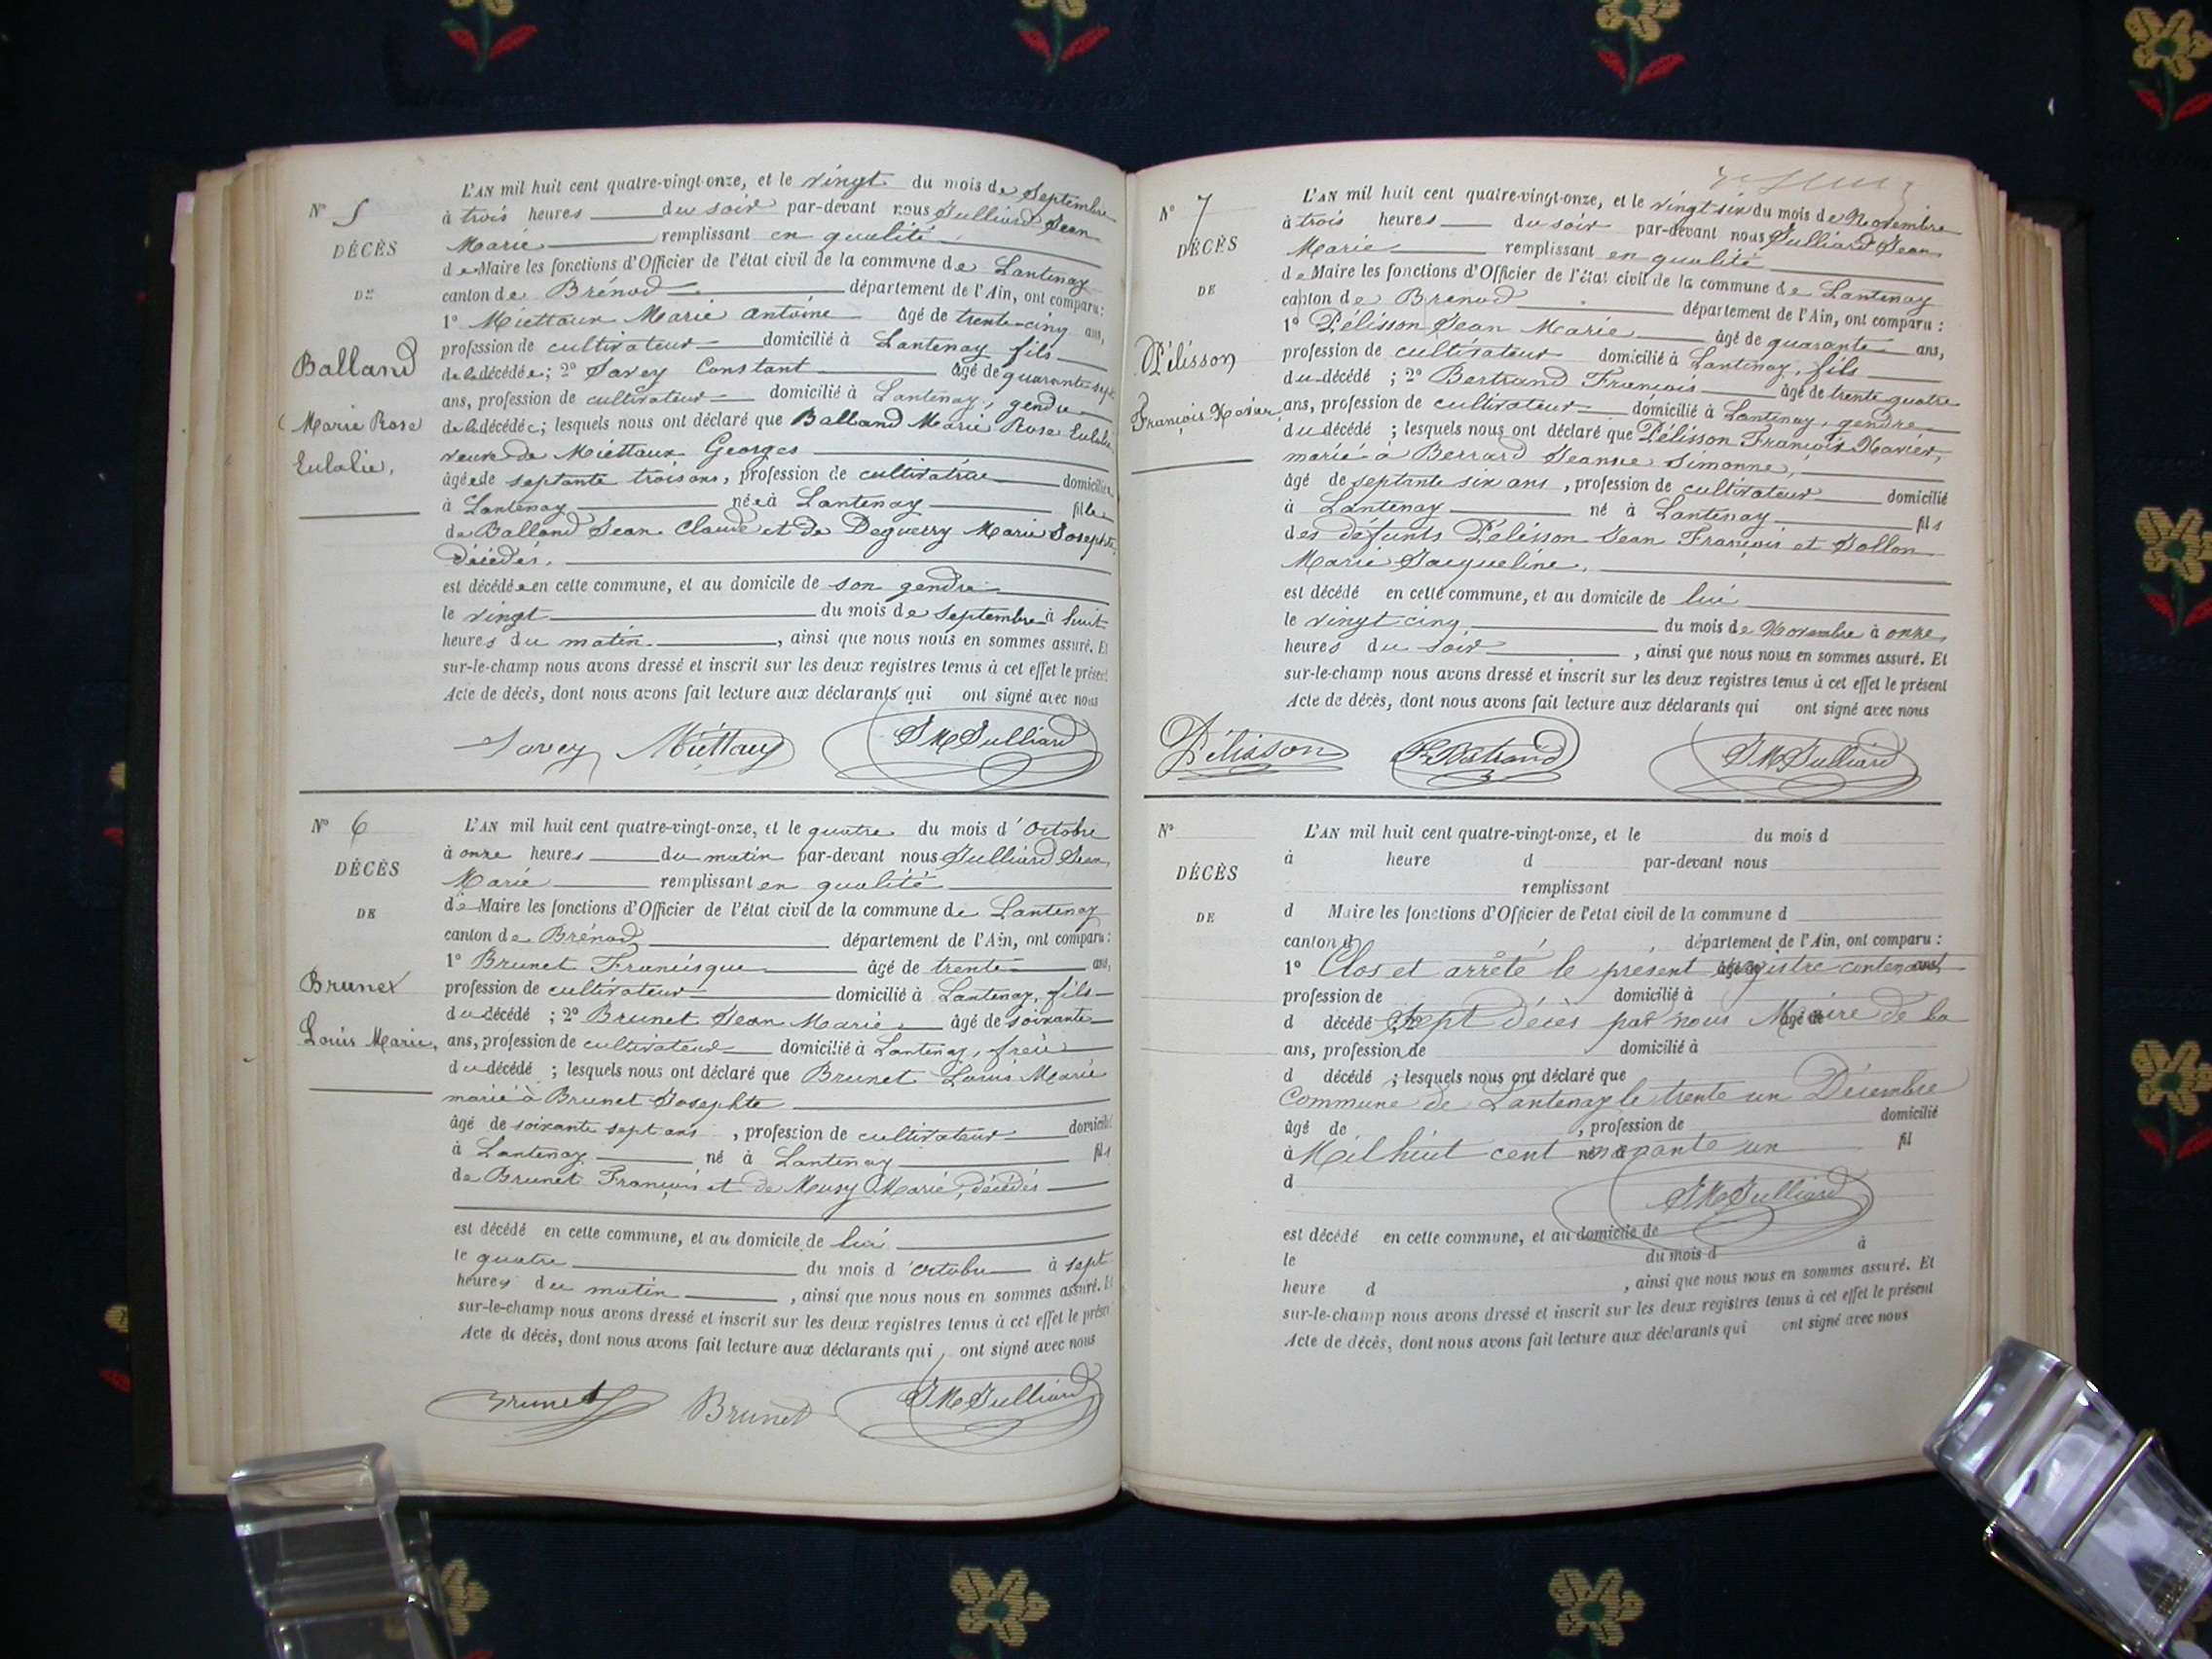 N° 5
DÉCÈS
DE
Balland
Marie Rose
Eulalie,
L'AN mil huit cent quatre-vingt-onze, et le vingt du mois de Septembre
à trois heures du soir par-devant nous Julliard Jean
Marie remplissant en qualité
de Maire les fonctions d'Officier de l'état civil de la commune de Lantenay
canton de Brénod département de l'Ain, ont comparu :
1° Miéttaux Marie Antoine âgé de trente-cinq ans,
profession de cultivateur domicilié à Lantenay fils
de la décédée ; 2° Savey Constant âgé de quarante-sept
ans, profession de cultivateur domicilié à Lantenay, gendre
de la décédée ; lesquels nous ont déclaré que Balland Marie Rose Eulalie
veuve de Miéttaux Georges
âgée de septante trois ans, profession de cultivatrice domiciliée
à Lantenay née à Lantenay fille
de Balland Jean Claude et de Deguerry Marie Josephte,
décédés.
est décédée en cette commune, et au domicile de son gendre
le vingt du mois de Septembre à huit
heures du matin , ainsi que nous nous en sommes assuré. Et
sur-le-champ nous avons dressé et inscrit sur les deux registres tenus à cet effet le présent
Acte de décès, dont nous avons fait lecture aux déclarants qui ont signé avec nous
Savey Miéttaux JM Julliard
N° 6
DÉCÈS
DE
Brunet
Louis Marie,
L'AN mil huit cent quatre-vingt-onze, et le quatre du mois d'Octobre
à onze heures du matin par-devant nous Julliard Jean
Marie remplissant en qualité
de Maire les fonctions d'Officier de l'état civil de la commune de Lantenay
canton de Brénod département de l'Ain, ont comparu :
1° Brunet Francisque âgé de trente ans,
profession de cultivateur domicilié à Lantenay, fils
du décédé ; 2° Brunet Jean Marie âgé de soixante
ans, profession de cultivateur domicilié à Lantenay, frère
du décédé ; lesquels nous ont déclaré que Brunet Louis Marie
marié à Brunet Josephte
âgé de soixante sept ans , profession de cultivateur domicilié
à Lantenay né à Lantenay fils
de Brunet François et de Musy Marie, décédés
est décédé en cette commune, et au domicile de lui
le quatre du mois d'Octobre à sept
heures du matin , ainsi que nous nous en sommes assuré. Et
sur-le-champ nous avons dressé et inscrit sur les deux registres tenus à cet effet le présent
Acte de décès, dont nous avons fait lecture aux déclarants qui ont signé avec nous
Brunet Brunet JM Julliard
N° 7
DÉCÈS
DE
Pélisson
François Xavier,
L'AN mil huit cent quatre-vingt-onze, et le vingt six du mois de Novembre
à trois heures du soir par-devant nous Julliard Jean
Marie remplissant en qualité
de Maire les fonctions d'Officier de l'état civil de la commune de Lantenay
canton de Brenod département de l'Ain, ont comparu :
1° Pélisson Jean Marie âgé de quarante ans,
profession de cultivateur domicilié à Lantenay, fils
du décédé ; 2° Bertrand François âgé de trente quatre
ans, profession de cultivateur domicilié à Lantenay, gendre
du décédé ; lesquels nous ont déclaré que Pélisson François Xavier,
marié à Berrard Jeanne Simonne,
âgé de septante six ans , profession de cultivateur domicilié
à Lantenay né à Lantenay fils
des défunts Pélisson Jean François et Jollon
Marie Jacqueline.
est décédé en cette commune, et au domicile de lui
le vingt cinq du mois de Novembre à onze
heures du soir , ainsi que nous nous en sommes assuré. Et
sur-le-champ nous avons dressé et inscrit sur les deux registres tenus à cet effet le présent
Acte de décès, dont nous avons fait lecture aux déclarants qui ont signé avec nous
Pélisson JM Julliard
N°
DÉCÈS
DE
L'AN mil huit cent quatre-vingt-onze, et le du mois d
à heure d par-devant nous
remplissant
d Maire les fonctions d'Officier de l'état civil de la commune d
canton d département de l'Ain, ont comparu :
1° Clos et arrêté le présent registre contenant âgé de ans,
profession de domicilié à
d décédé ; 2° Sept décès par nous Maire de la âgé de
ans, profession de domicilié à
d décédé ; lesquels nous ont déclaré que
Commune de Lantenay le trente un Décembre
âgé de , profession de domicilié
à Mil huit cent nonante un né à fil
d
JM Julliard
est décédé en cette commune, et au domicile de
le du mois d à
heure d , ainsi que nous nous en sommes assuré. Et
sur-le-champ nous avons dressé et inscrit sur les deux registres tenus à cet effet le présent
Acte de décès, dont nous avons fait lecture aux déclarants qui ont signé avec nous